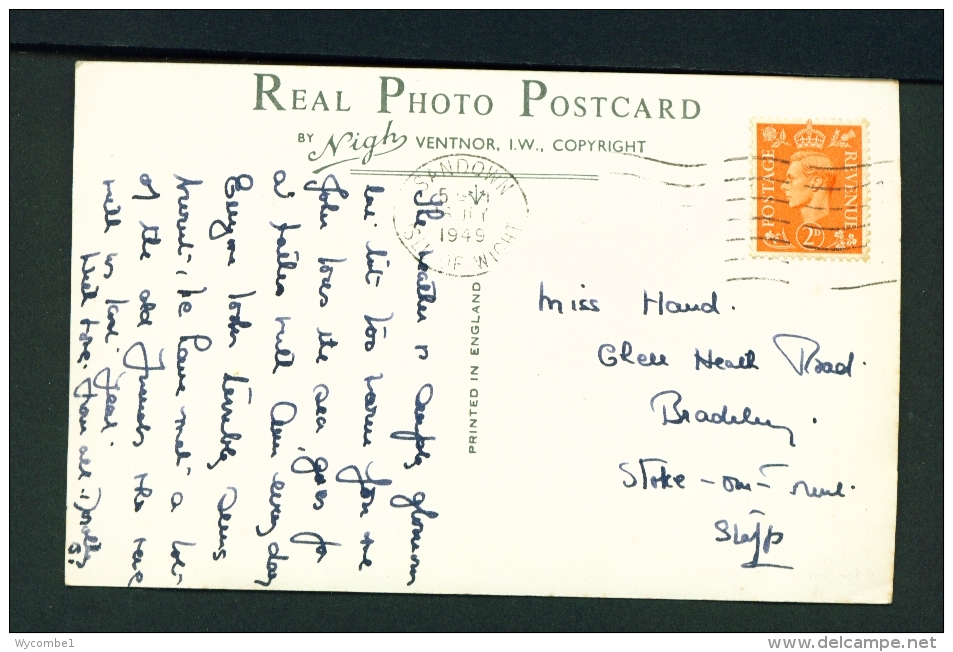 REAL PHOTO POSTCARD
BY Nigh VENTNOR, I.W., COPYRIGHT
SANDOWN
1949
ISLE OF WIGHT
POSTAGE REVENUE
2D
PRINTED IN ENGLAND
The weather is simply glorious
but bit too warm for me
John loves the sea, goes for
a sail with Len every day
Everyone looks terribly
burnt, we have met a lot
of the old friends who were
with us last year.
Best love from all. Dorothy
Miss Hand.
Glen Heath Road.
Bradeley.
Stoke-on-Trent.
Staffs
Wycombe1
www.delcampe.net